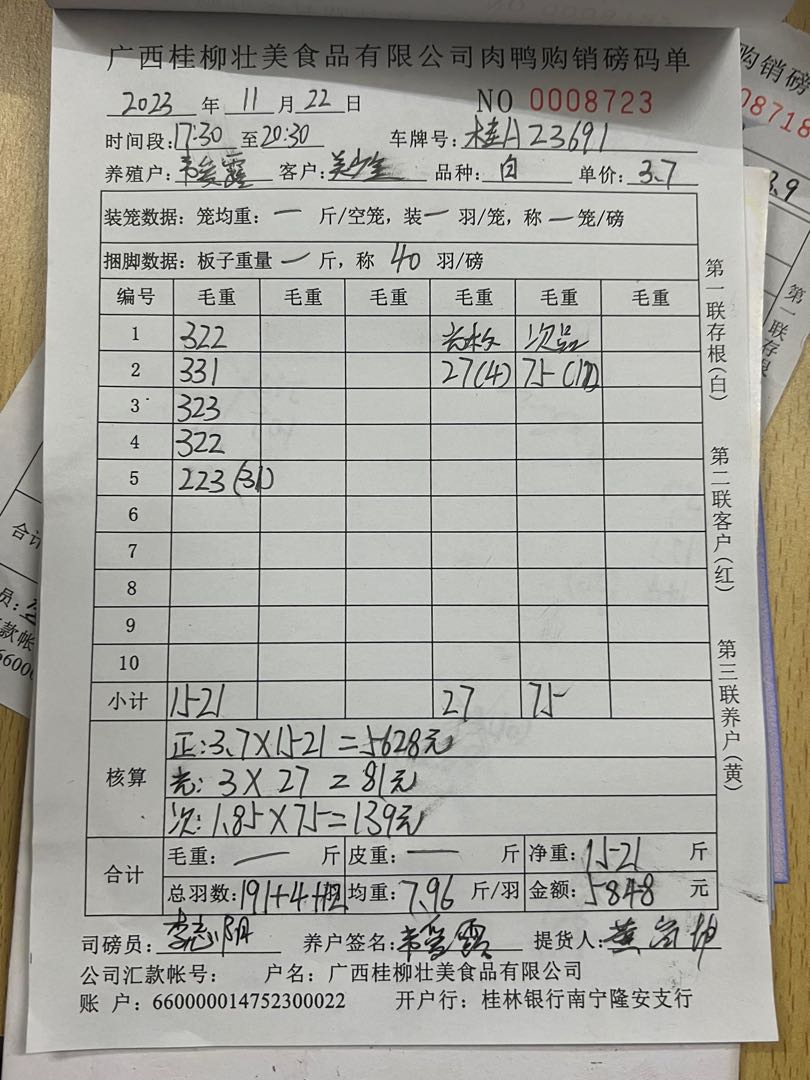 广西桂柳壮美食品有限公司肉鸭购销磅码单
2023 年 11 月 22 日 NO 0008723
时间段:17:30 至 20:30 车牌号:桂A23691
养殖户: 客户: 品种:白 单价:3.7
装笼数据:笼均重:一 斤/空笼,装一 羽/笼,称一笼/磅
捆脚数据:板子重量 一 斤,称 40 羽/磅
编号 毛重 毛重 毛重 毛重 毛重 毛重
1 322 次品
2 331 27(4) 75
3 323
4 322
5 223(31)
6
7
8
9
10
小计 1521 27 75
核算 正:3.7×1521=5628元
光:3×27=81元
次:1.85×75=139元
合计 毛重:一 斤 皮重:一 斤 净重:1521 斤
总羽数:191+4+ 均重:7.96 斤/羽 金额:5848 元
司磅员: 养户签名: 提货人:
公司汇款帐号: 户名:广西桂柳壮美食品有限公司
账 户:660000014752300022 开户行:桂林银行南宁隆安支行
第一联存根(白)
第二联客户(红)
第三联养户(黄)
购销磅
08718
3.9
第一联存根
合计
员:
款帐
6600